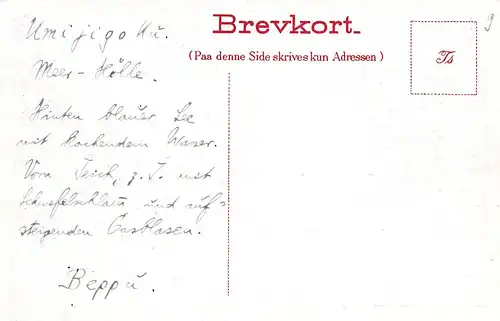 Brevkort.
(Paa denne Side skrives kun Adressen)
Ts
9
Umijigoku.
Meer-Hölle.
Hinten blauer See
mit kochendem Wasser.
Vorn Teich, z. T. mit
Schwefelschlamm und auf-
steigenden Gasblasen.
Beppu.